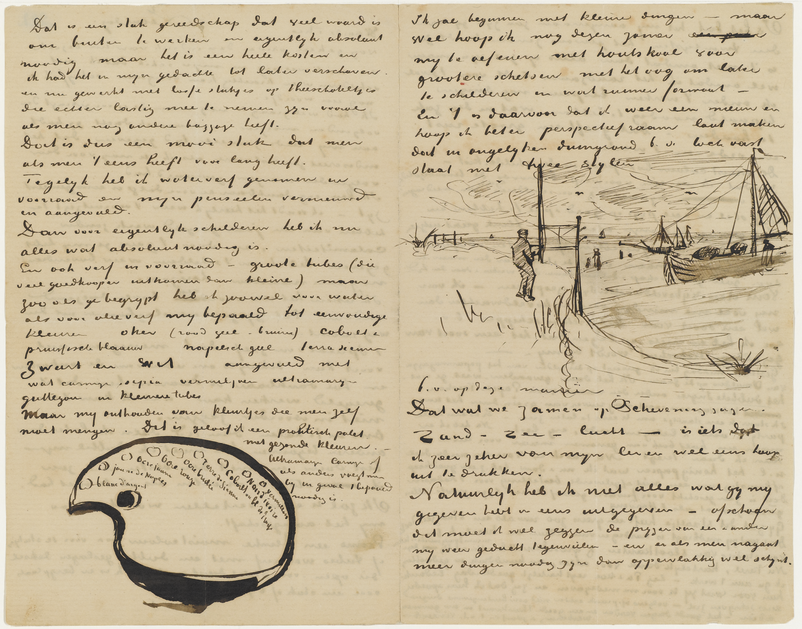 Dat is een stuk gereedschap dat veel waard is
om buiten te werken en eigentlyk absoluut
noodig maar het is een heele kosten en
ik had het in myn gedachte tot later verschoven
en nu gewerkt met losse stukjes op theeschoteltjes
die echter lastig mee te nemen zyn vooral
als men nog andere bagage heeft.
Dat is dus een mooi stuk dat men
als men 't eens heeft voor lang heeft.
Tegelyk heb ik waterverf genomen in
voorraad en myn penseelen vernieuwd
en aangevuld.
Dan voor eigentlyk schilderen heb ik nu
alles wat absoluut noodig is.
En ook verf in voorraad – groote tubes (die
veel goedkooper uitkomen dan kleine) maar
zoo als ge begrypt heb ik zoowel voor water
als voor olieverf my bepaald tot eenvoudige
kleuren oker (rood geel – bruin) cobalt &
pruissisch blaauw napelsch geel terra sienna
zwart en wit aangevuld met
wat carmyn sepia vermiljoen ultramaryn
guttegom in kleinere tubes
Maar my onthouden van kleurtjes die men zelf
moet mengen. Dit is geloof ik een praktisch palet
met gezonde kleuren. –
Ultramaryn carmyn of
als anders voegt men
by in geval 't bepaald
noodig is
blanc d'argent
jaune de Naples
ocre jaune
ocre rouge
terre de Sienne
Cobalt
Noir d'ivoire
vermillon
Ik zal beginnen met kleine dingen – maar
wel hoop ik nog dezen zomer
my te oefenen met houtskool voor
grootere schetsen met het oog om later
te schilderen in wat ruimer formaat –
En 't is daarvoor dat ik weer een nieuw en
hoop ik beter perspectiefraam laat maken
dat in ongelyken duingrond b.v. toch vast
staat met twee stylen
b.v. op deze manier
Dat wat we zamen op Scheveningen zagen.
Zand – zee – lucht – is iets dat
ik zeer zeker voor myn leven wel eens hoop
uit te drukken.
Natuurlyk heb ik niet alles wat gy my
gegeven hebt in eens uitgegeven – ofschoon
dit moet ik wel zeggen de pryzen van een & ander
my weer geducht tegenvielen – en er als men nagaat
meer dingen noodig zyn dan oppervlakkig wel schynt.